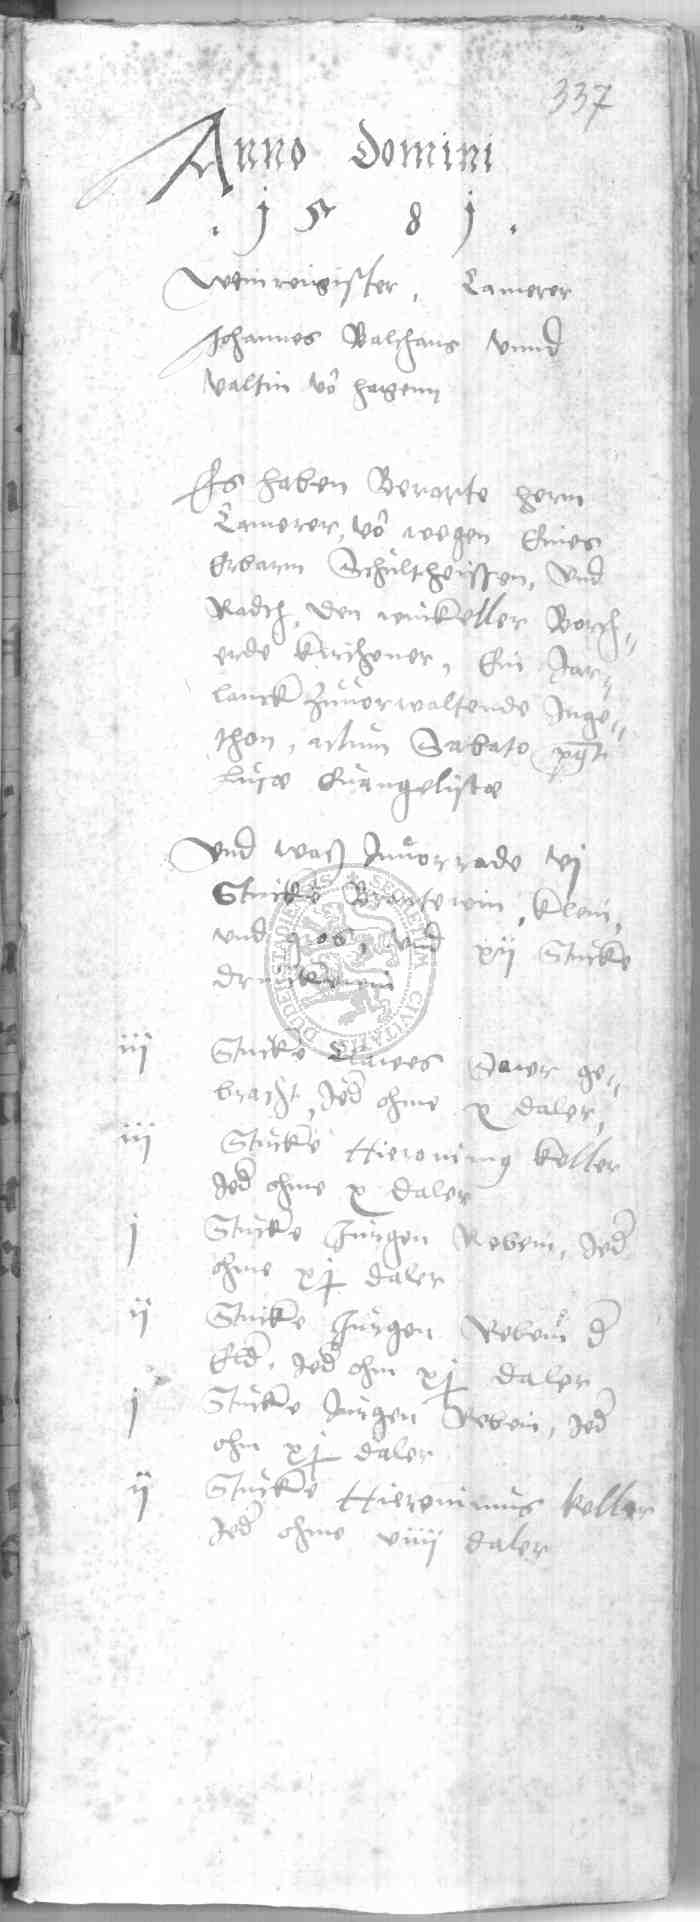 337
Anno Domini
. 1 5 8 1 .
Weinregister, Camerer
Johannes Balthaus Vnnd
Valtin võ hagenn
Es haben Berarte hern
Camerer, võ wegen Eines
Erbarn Schultheissen, Vnd
Radts, den winkeller Borch=
erde kirchener, Ein Jar=
lanck zuuorwaltende Inge=
thon, actum Sabato post
Lucæ Euangelistæ
Vnd waß Inuorrade vj
Stucke Brantewin, klein,
vnd gros, vnd xij Stucke
iij Stucke Clawes Sawer ge=
bracht, Jed ohme x daler,
iij Stucke Hieronimus keller
Jed ohme x daler
j Stucke Jurgen Rebein, Jed
ohme xj daler
ij Stucke Jurgen Rebein d
Eld, Jed ohm xj daler
j Stucke Jurgen Rebein, Jed
ohm xj daler
ij Stucke Hieronimus keller
Jed ohme viiij daler